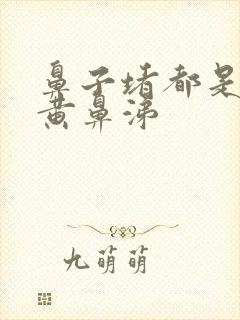 鼻子堵都是
黄鼻涕
九萌萌